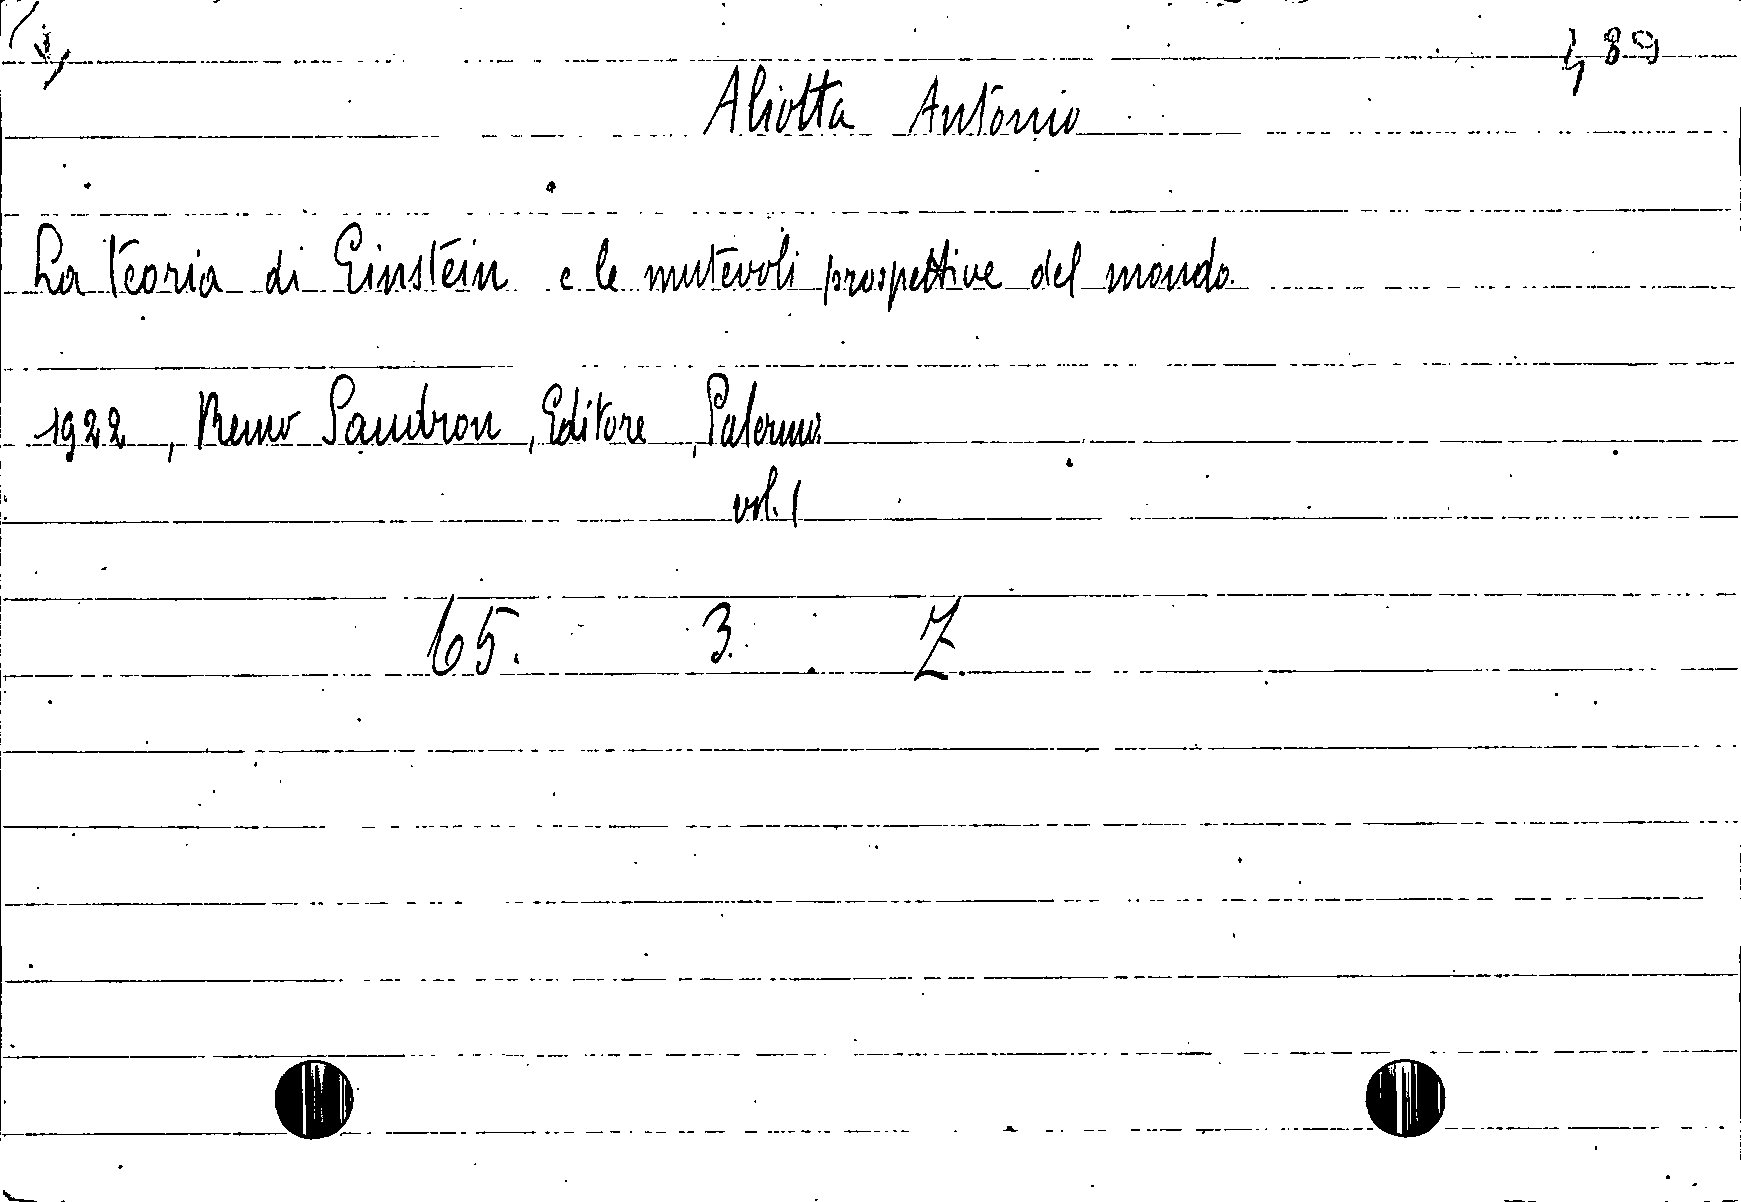 489
Aliotta Antonio
La teoria di Einstein e le mutevoli prospettive del mondo.
1922, Remo Sandron, Editore, Palermo.
vol. 1
65. 3. Z.